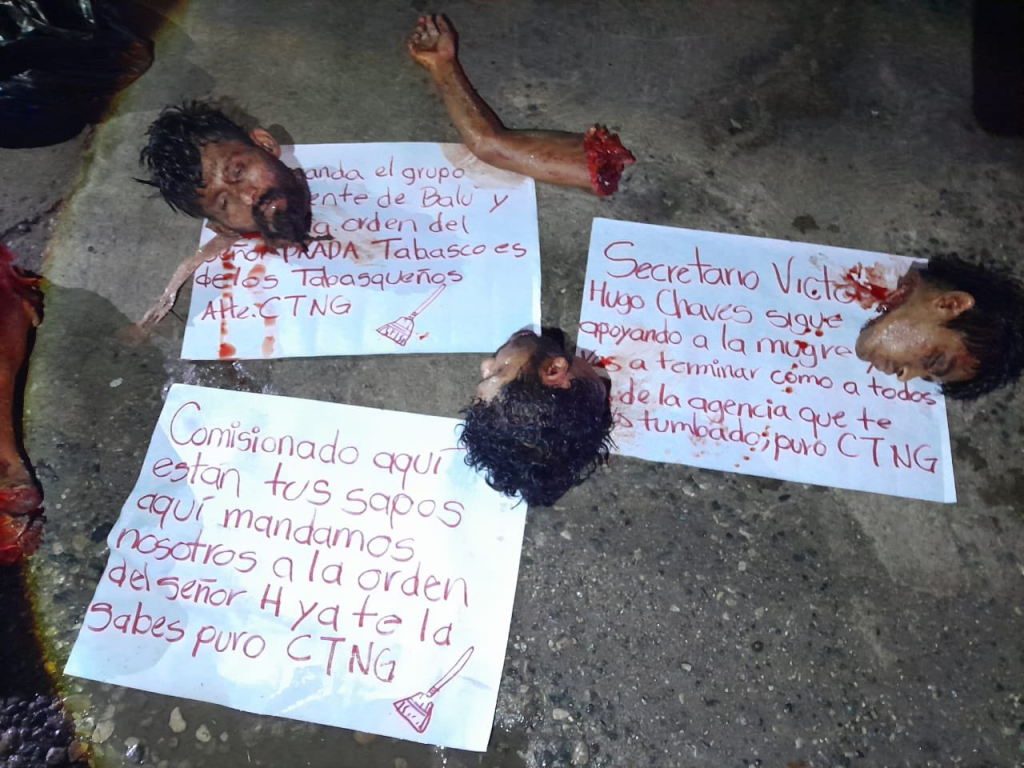 anda el grupo
ente de Balu y
a orden del
señor PRADA Tabasco es
de los Tabasqueños
Atte. CTNG
Secretario Victo
Hugo Chaves sigue
apoyando a la mugre
Vas a terminar cómo a todos
de la agencia que te
tumbado; puro CTNG
Comisionado aquí
están tus sapos
aquí mandamos
nosotros a la orden
del señor H ya te la
sabes puro CTNG